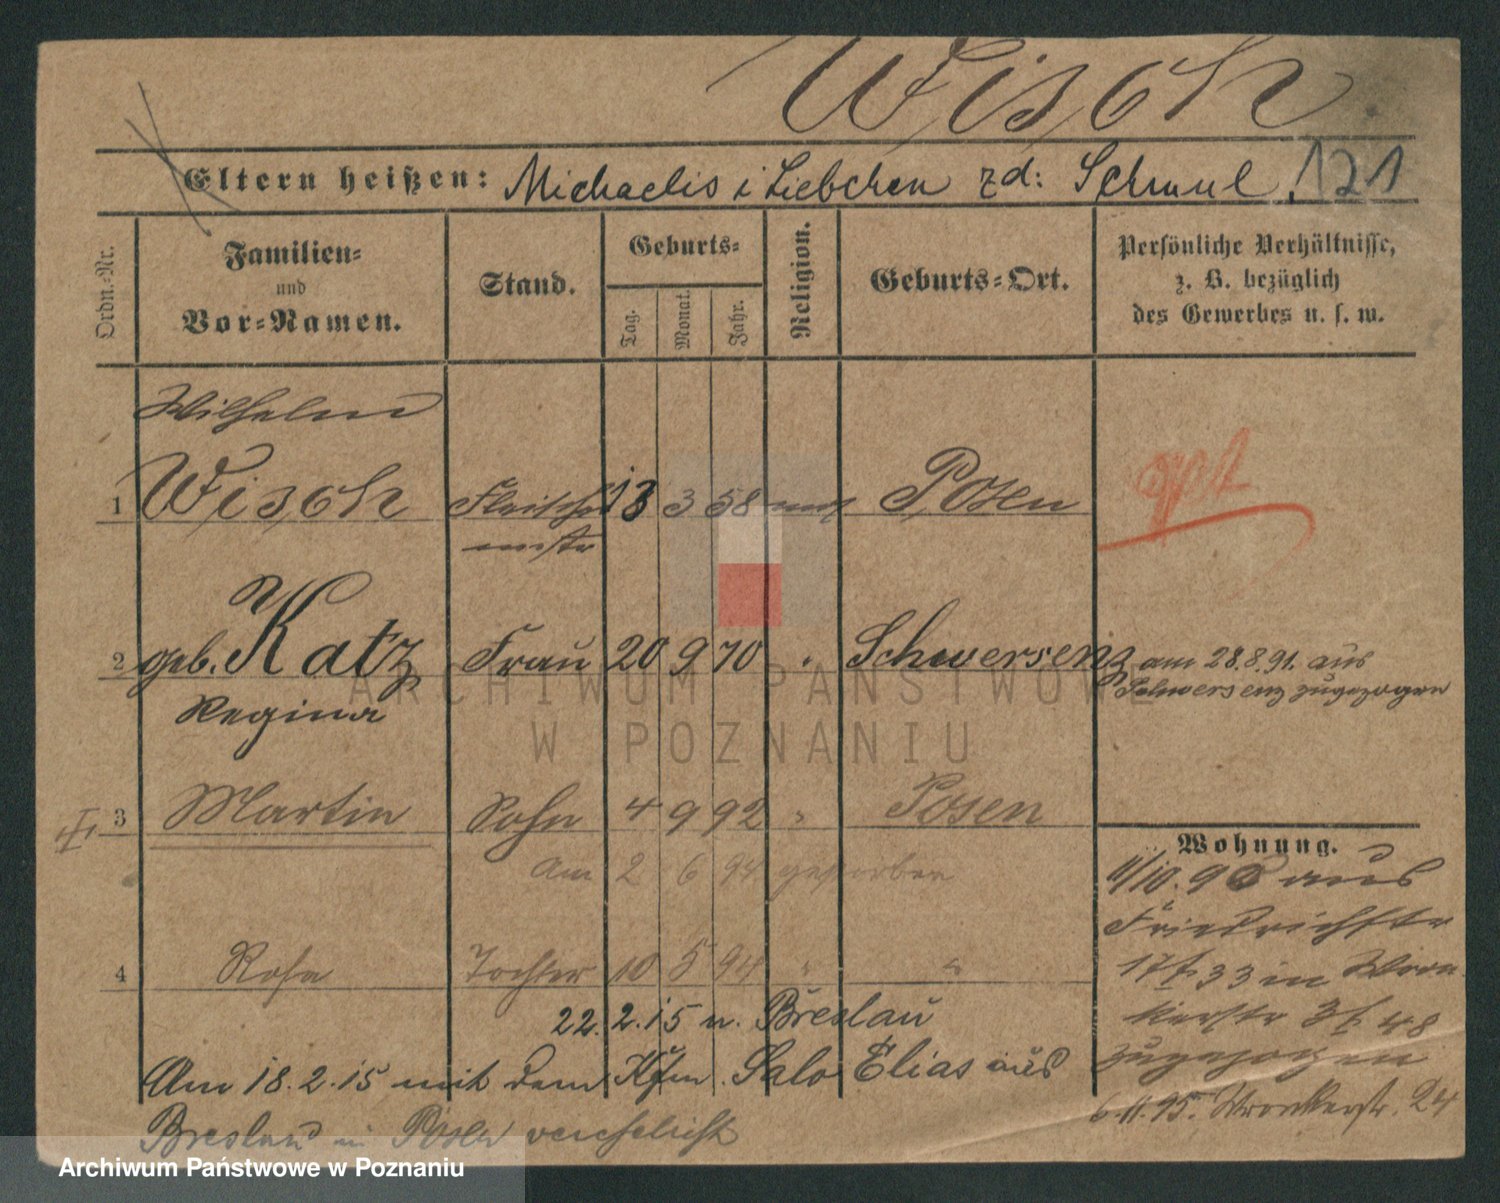 Wisch
Eltern heißen: Michaelis i Liebchen zd: Schmul. 121
Ordn.-Nr.
Familien-
und
Vor-Namen.
Stand.
Geburts-
Tag.
Monat.
Jahr.
Religion.
Geburts-Ort.
Persönliche Verhältnisse,
z. B. bezüglich
des Gewerbes u. s. w.
Wilhelm
1 Wisch Fleischer 13 3 58 mos Posen
mstr
2 geb. Katz Frau 20 9 70 " Schwersenz am 28.8.91. aus
Regina
Schwersenz zugezogen
3 Martin Sohn 4 9 92 " Posen
am 2 6 94 gestorben
4 Rosa Tochter 10 5 94 " "
22.2.15 n. Breslau
Am 18.2.15 mit dem Kfm. Salo Elias aus
Breslau in Posen verehelicht
Wohnung.
11/10. 90 aus
Friedrichstr
17 33 in Wron
kerstr 48
zugezogen
6.11.95. Wronkerstr. 24
ARCHIWUM PAŃSTWOWE
W POZNANIU
Archiwum Państwowe w Poznaniu